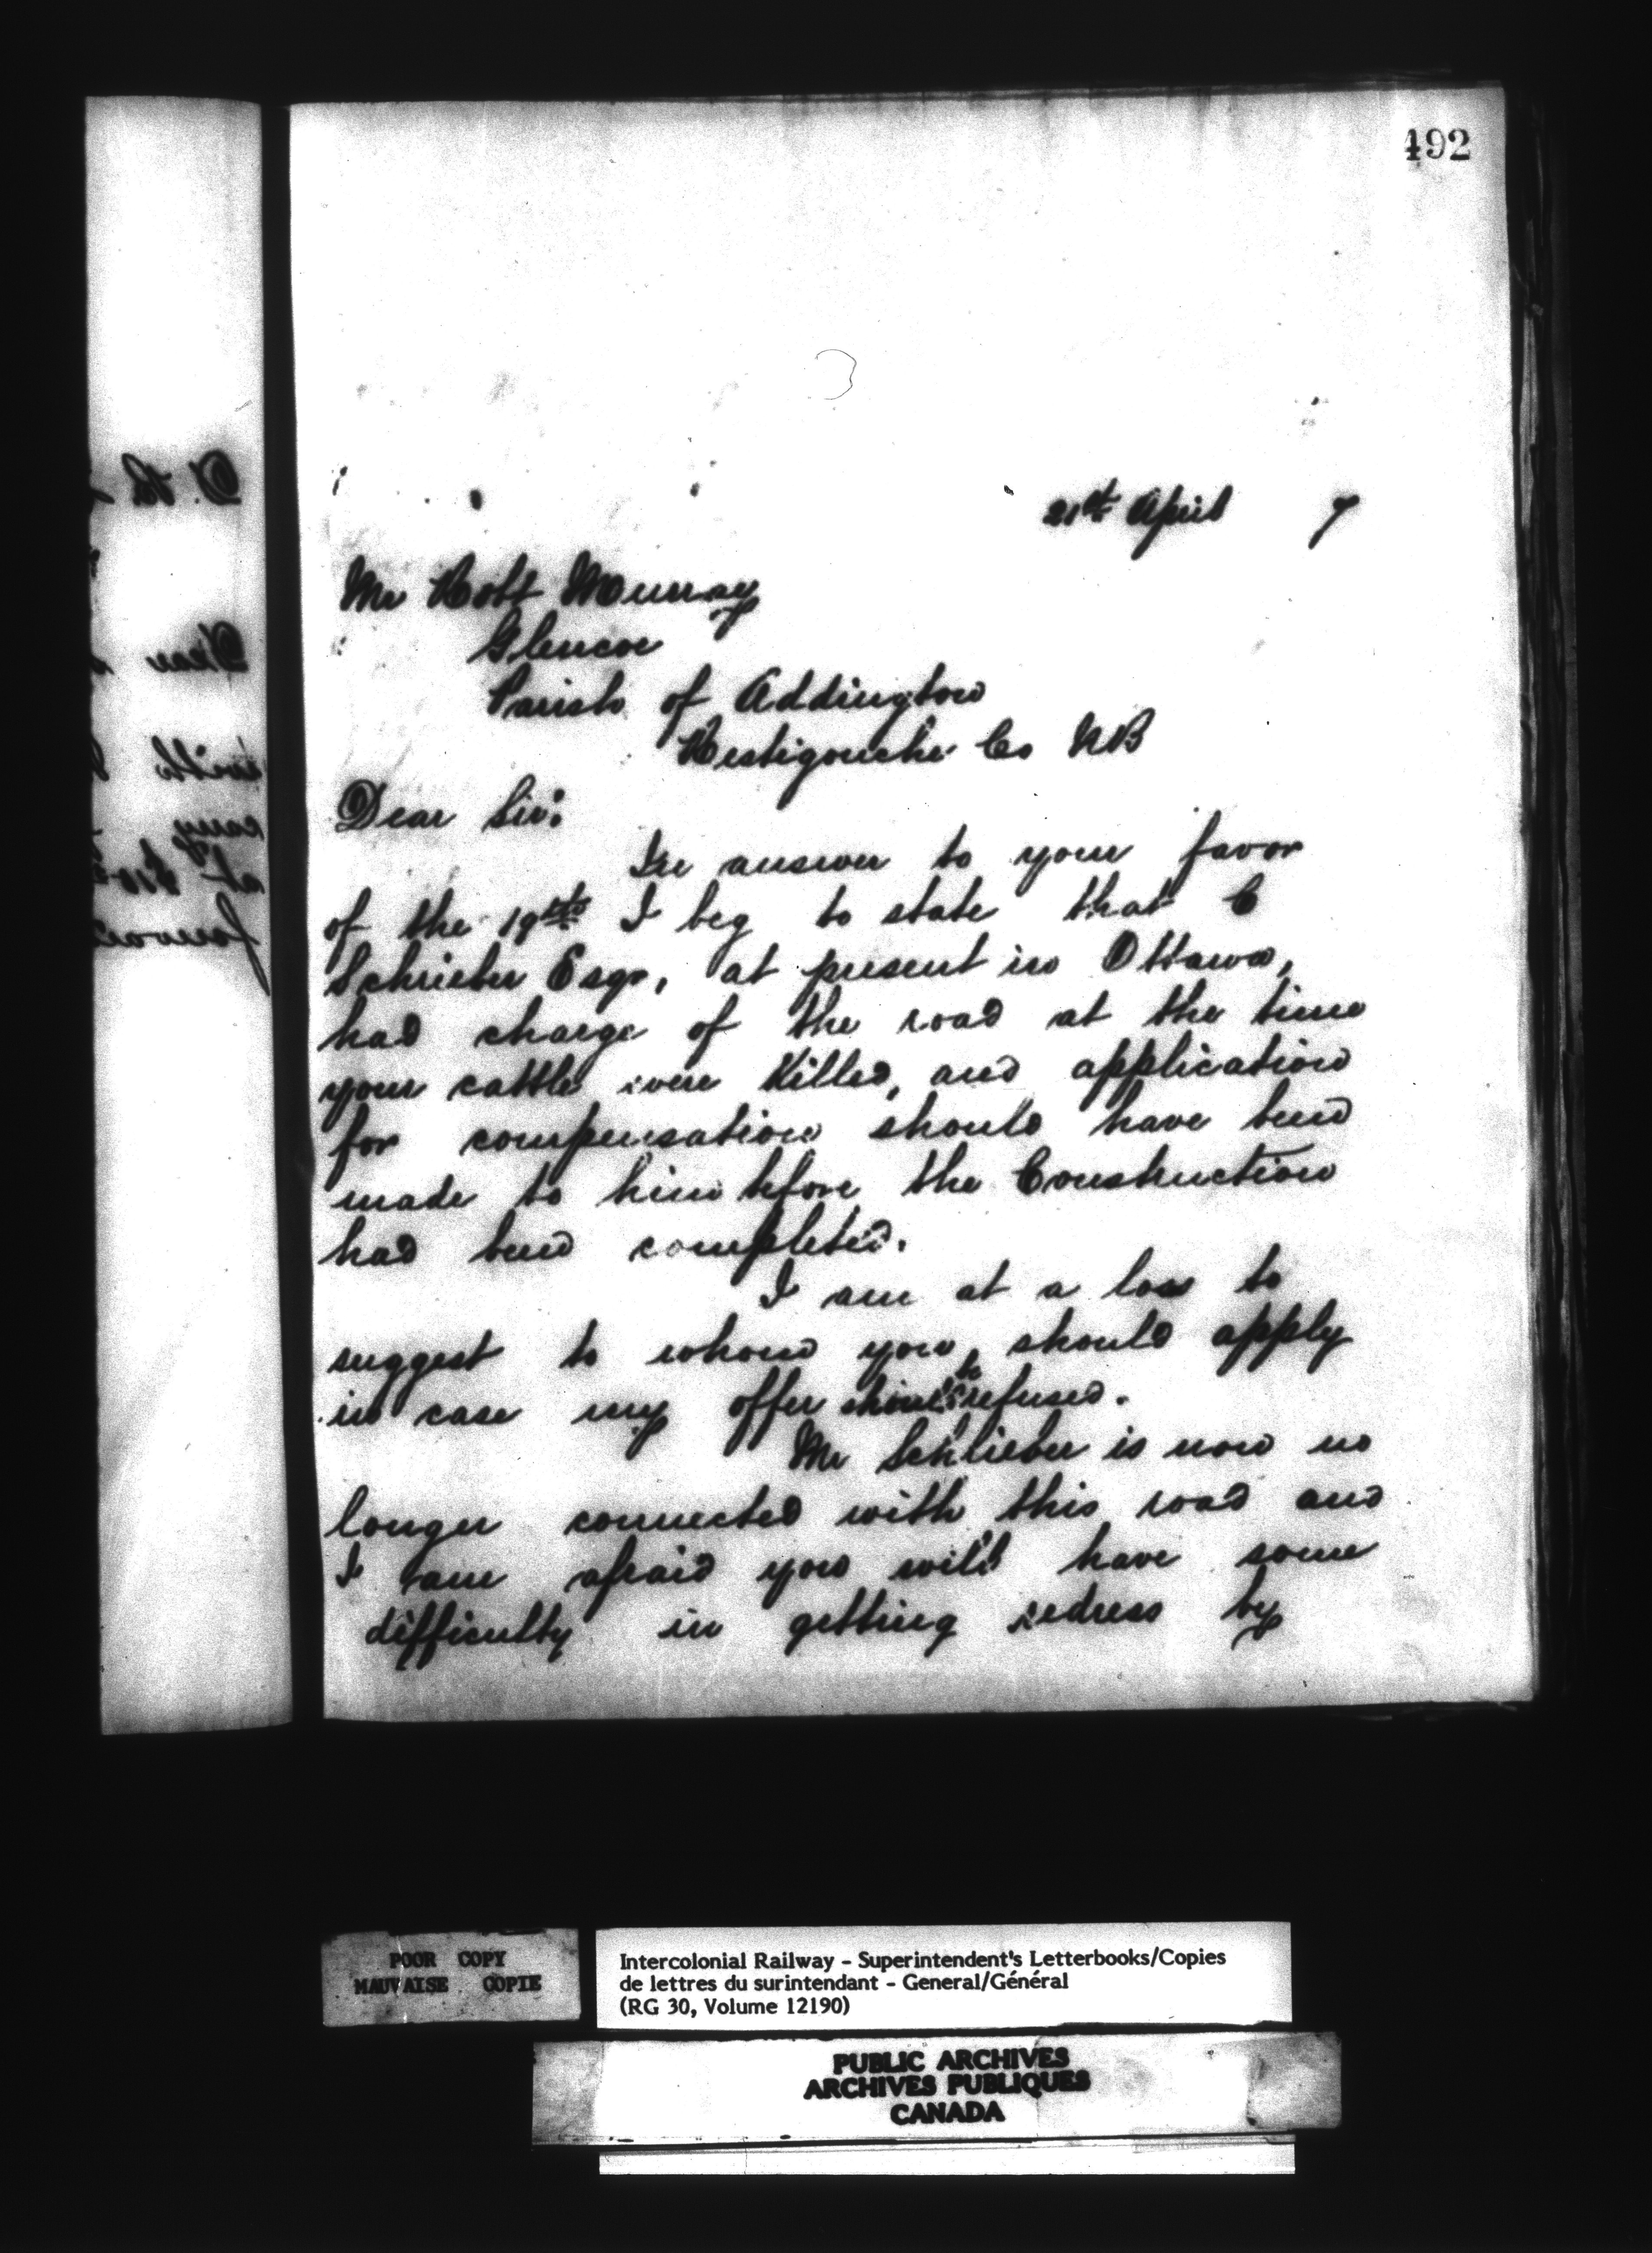 492
21st April 7
Mr Robt Murray
Glencoe
Parish of Addington
Restigouche Co NB
Dear Sir:
In answer to your favor
of the 19th I beg to state that C
Schrieber Esqr, at present in Ottawa,
had charge of the road at the time
your cattle were killed, and application
for compensation should have been
made to him before the Construction
had been completed.
I am at a loss to
suggest to whom you should apply
in case my offer is refused.
Mr Schrieber is now no
longer connected with this road and
I am afraid you will have some
difficulty in getting redress by
POOR COPY
MAUVAISE COPIE
Intercolonial Railway - Superintendent's Letterbooks/Copies
de lettres du surintendant - General/Général
(RG 30, Volume 12190)
PUBLIC ARCHIVES
ARCHIVES PUBLIQUES
CANADA